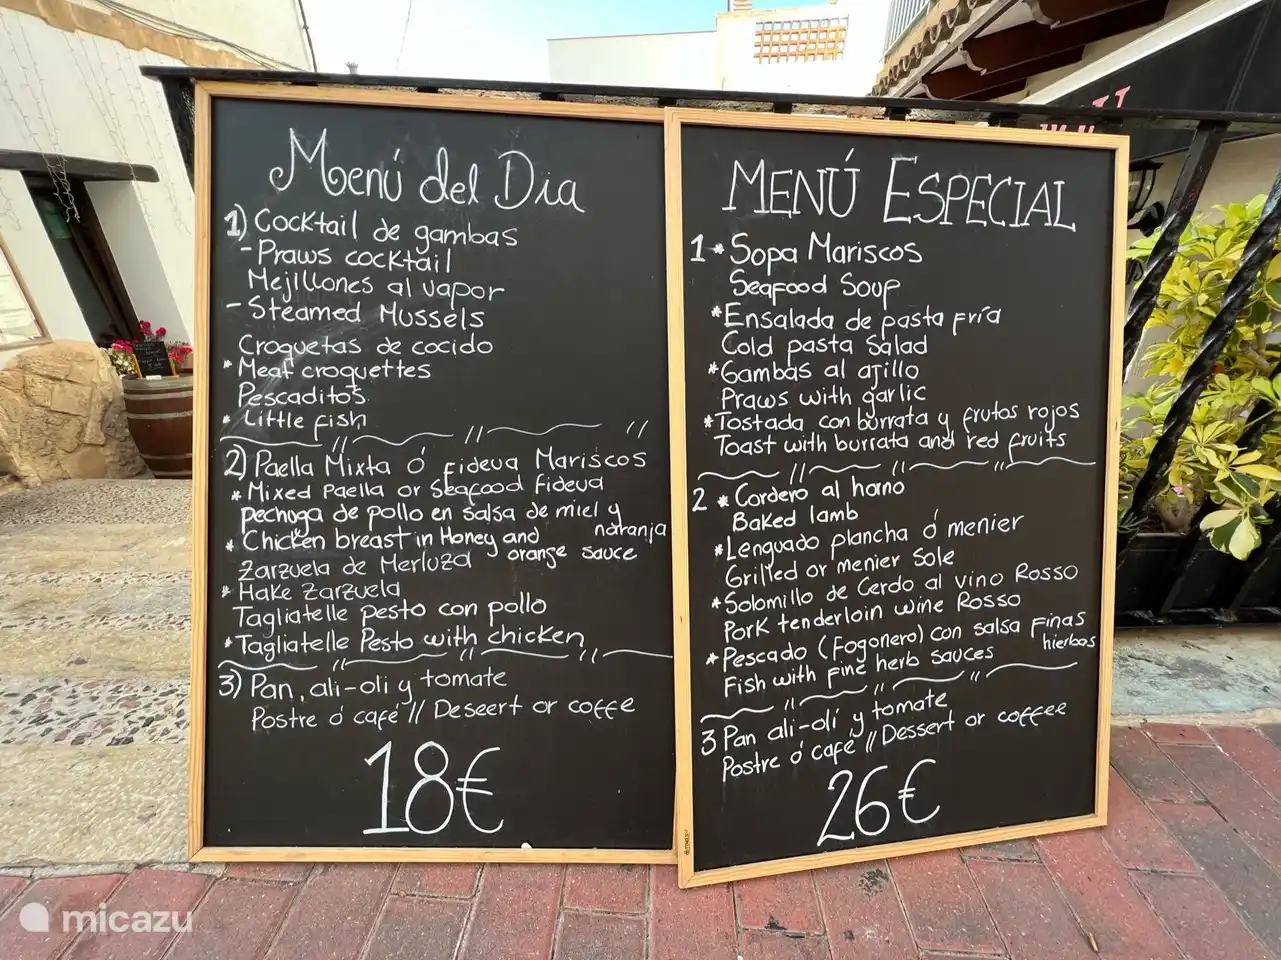 Menú del Dia
1) Cocktail de gambas
- Praws cocktail
Mejillones al vapor
- Steamed Mussels
Croquetas de cocido
* Meat croquettes
Pescaditos
* Little fish
2) Paella Mixta ó Fideua Mariscos
* Mixed Paella or Seafood Fideua
Pechuga de pollo en salsa de miel y naranja
* Chicken breast in Honey and orange sauce
Zarzuela de Merluza
* Hake Zarzuela
Tagliatelle Pesto con pollo
* Tagliatelle Pesto with chicken
3) Pan, ali-oli y tomate
Postre ó café // Deseert or coffe
18€
MENÚ ESPECIAL
1 * Sopa Mariscos
Seafood Soup
* Ensalada de pasta fría
Cold pasta Salad
* Gambas al ajillo
Praws with garlic
* Tostada con burrata y frutos rojos
Toast with burrata and red fruits
2 * Cordero al horno
Baked lamb
* Lenguado plancha ó menier
Grilled or menier Sole
* Solomillo de Cerdo al vino Rosso
Pork tenderloin wine Rosso
* Pescado (Fogonero) con salsa Finas hierbas
Fish with fine herb sauces
3 Pan ali-olí y tomate
Postre ó café // Dessert or coffee
26€
micazu